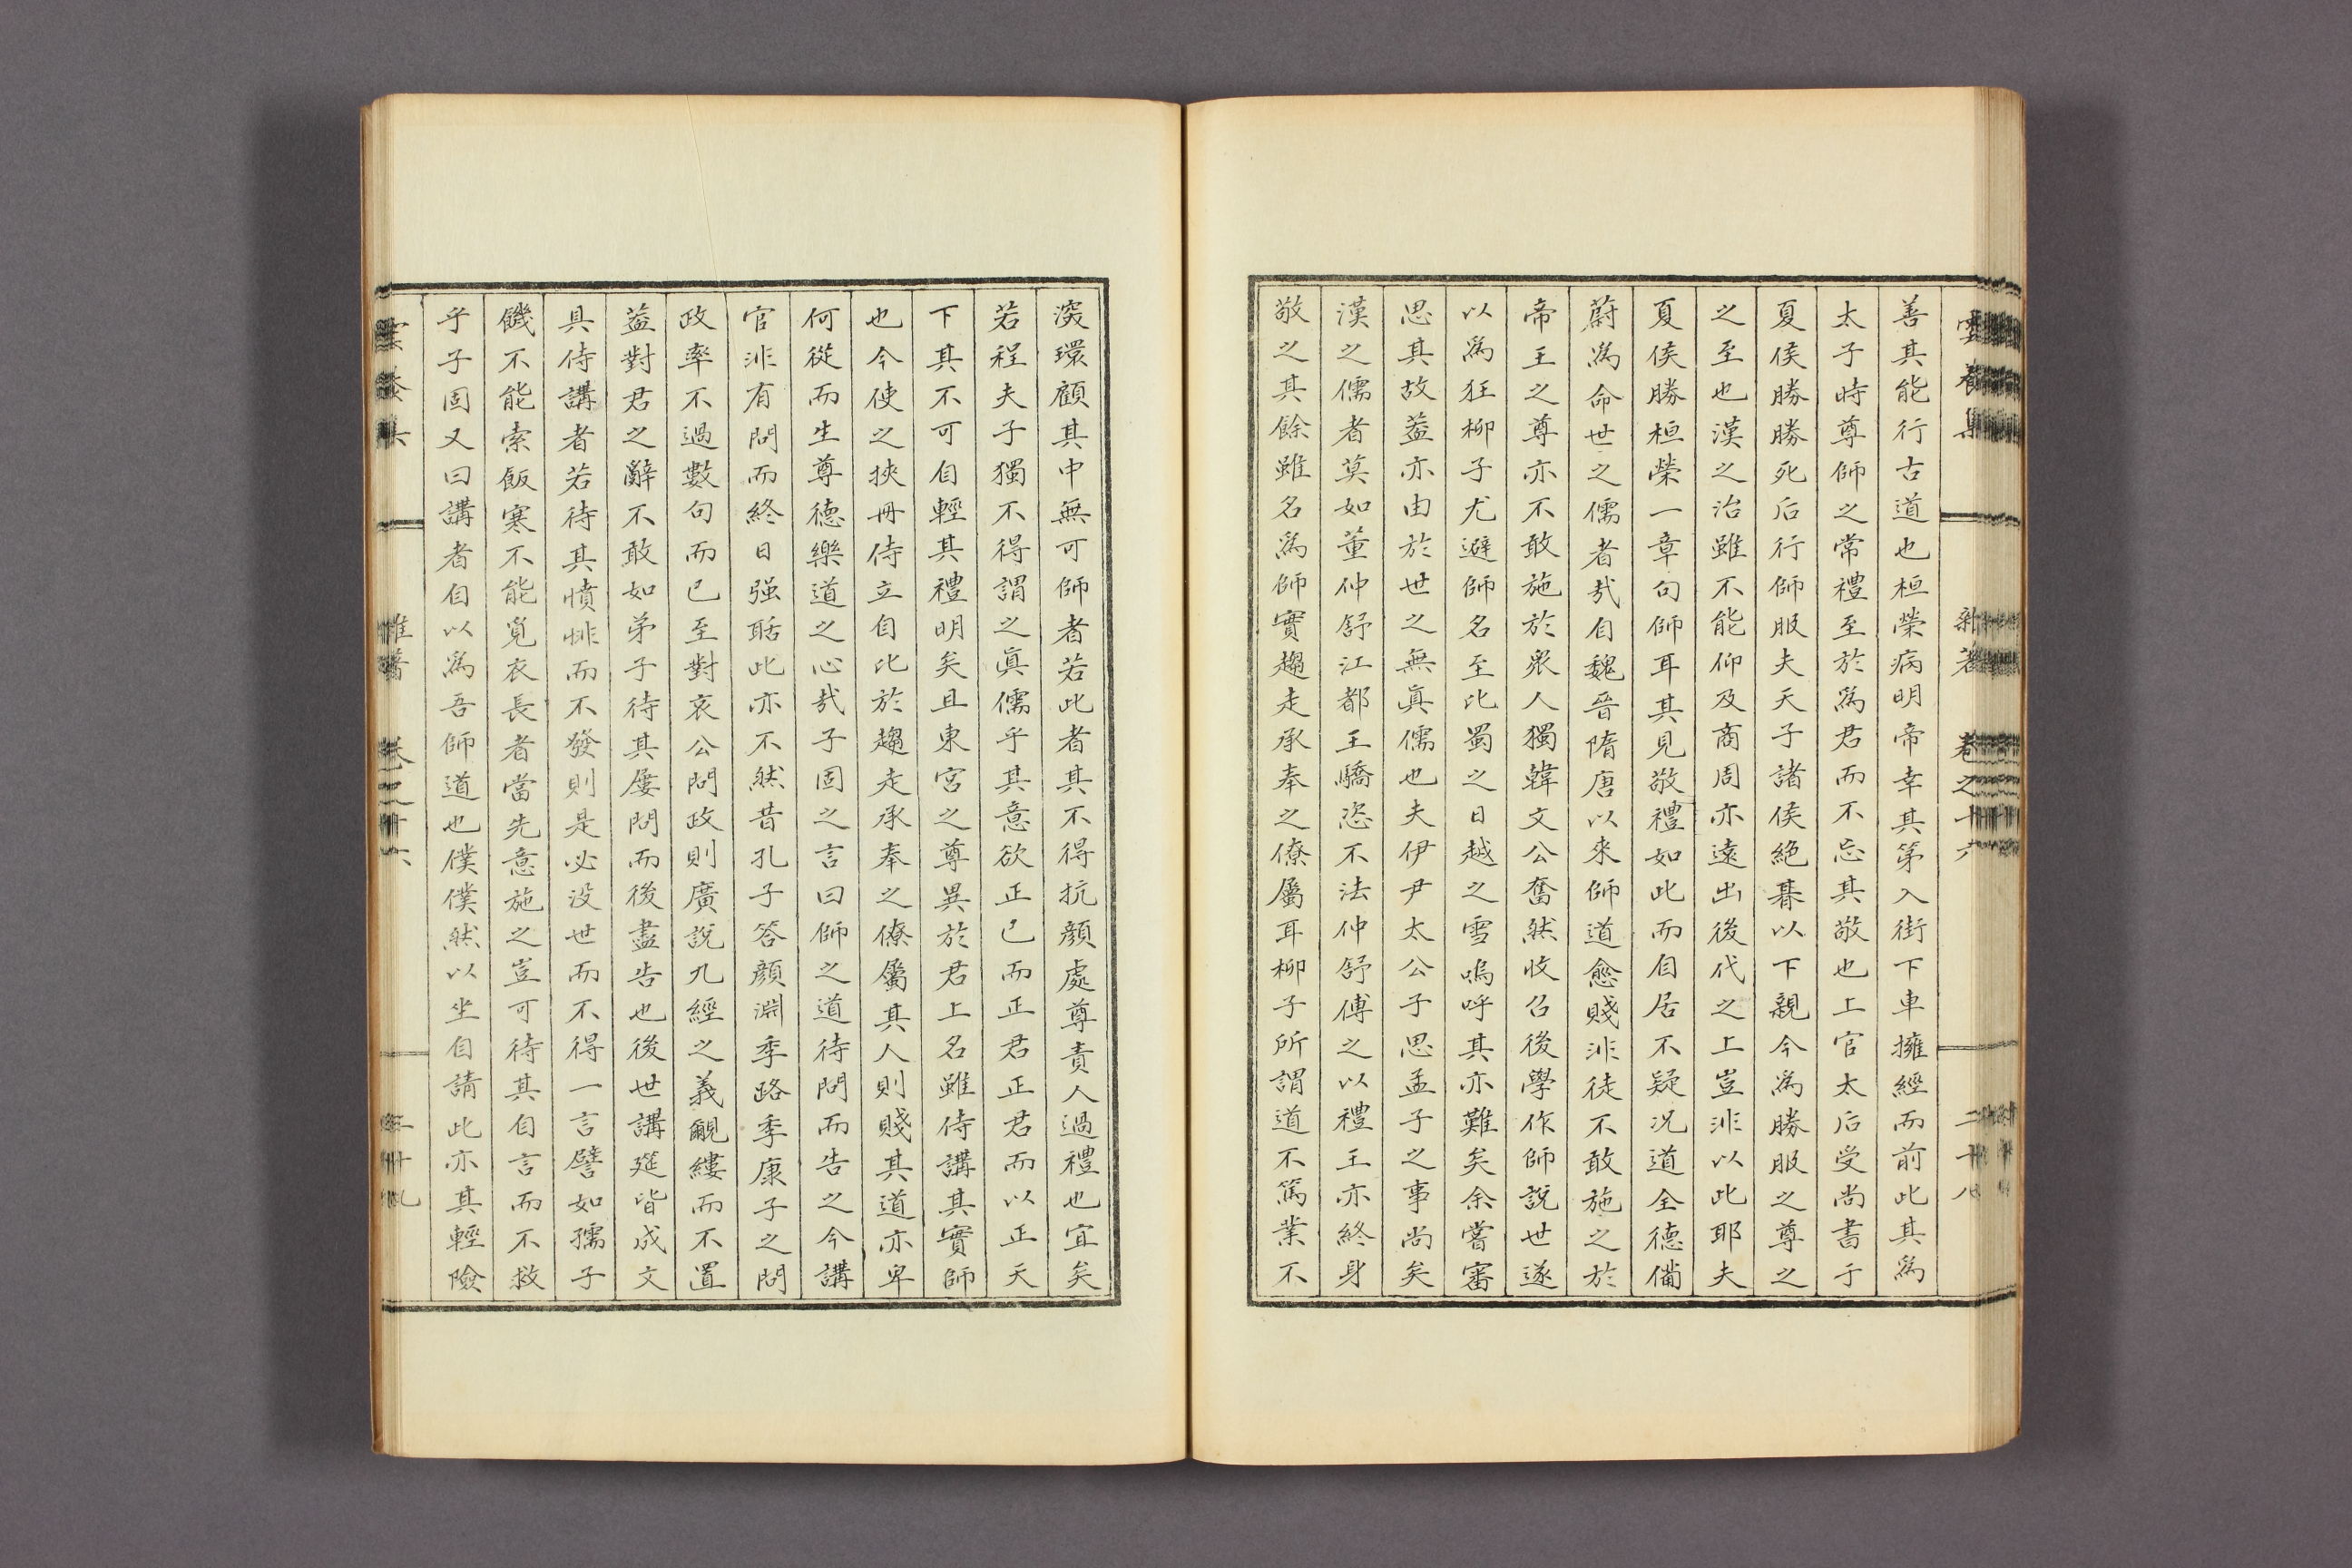 善其能行古道也桓榮病明帝幸其第入街下車擁經而前此其爲
太子時尊師之常禮至於爲君而不忘其敬也上官太后受尚書于
夏侯勝勝死后行師服夫天子諸侯絶朞以下親今爲勝服之尊之
之至也漢之治雖不能仰及商周亦遠出後代之上豈非以此耶夫
夏侯勝桓榮一章句師耳其見敬禮如此而自居不疑况道全德備
蔚爲命世之儒者哉自魏晉隋唐以來師道愈賤非徒不敢施之於
帝王之尊亦不敢施於衆人獨韓文公奮然收召後學作師說世遂
以爲狂柳子尤避師名至比蜀之日越之雪嗚呼其亦難矣余嘗審
思其故葢亦由於世之無眞儒也夫伊尹太公子思孟子之事尚矣
漢之儒者莫如董仲舒江都王驕恣不法仲舒傅之以禮王亦終身
敬之其餘雖名爲師實趨走承奉之僚屬耳柳子所謂道不篤業不
深環顧其中無可師者若此者其不得抗顔處尊責人過禮也宜矣
若程夫子獨不得謂之眞儒乎其意欲正已而正君正君而以正天
下其不可自輕其禮明矣且東宮之尊異於君上名雖侍講其實師
也今使之挾冊侍立自比於趨走承奉之僚屬其人則賤其道亦卑
何從而生尊德樂道之心哉子固之言曰師之道待問而告之今講
官非有問而終日强聒此亦不然昔孔子答顔淵季路季康子之問
政率不過數句而已至對哀公問政則廣說九經之義覼縷而不置
葢對君之辭不敢如弟子待其屢問而後盡告也後世講筵皆成文
具侍講者若待其憤悱而不發則是必没世而不得一言譬如孺子
饑不能索飯寒不能覓衣長者當先意施之豈可待其自言而不救
乎子固又曰講者自以爲吾師道也僕僕然以坐自請此亦其輕險